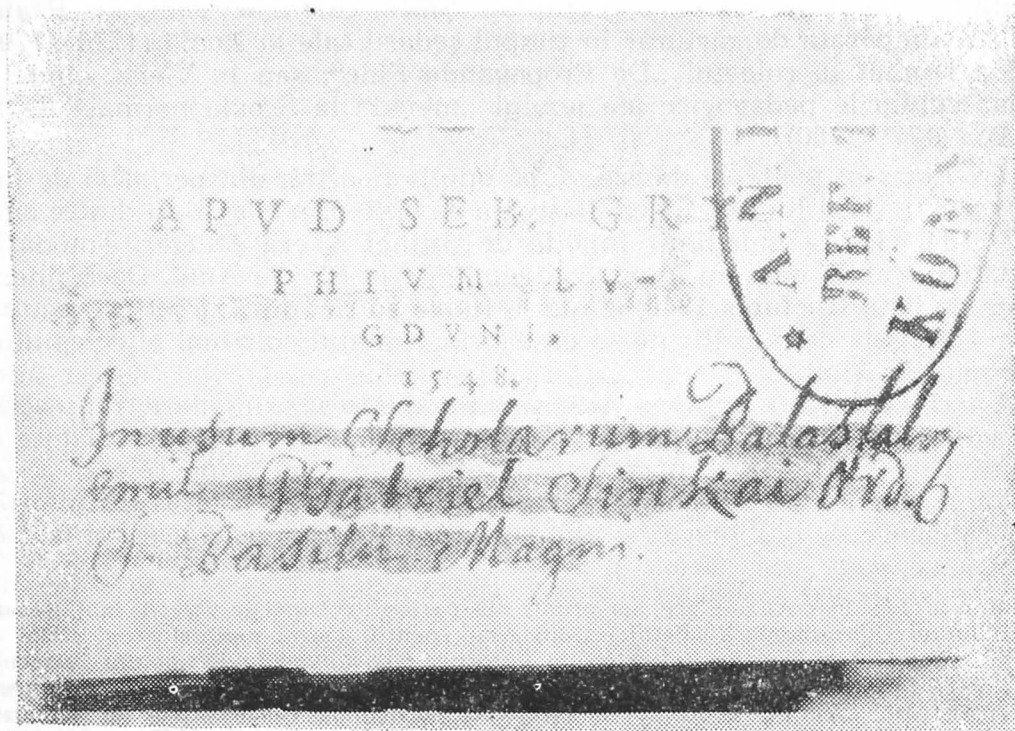 APVD SEB. GRY
PHIVM LV-
GDVNI.
1548.
In usum Scholarum Balasfalv
emit Gabriel Sinkai Ord.
S. Basilii Magni.
REF
KÖN